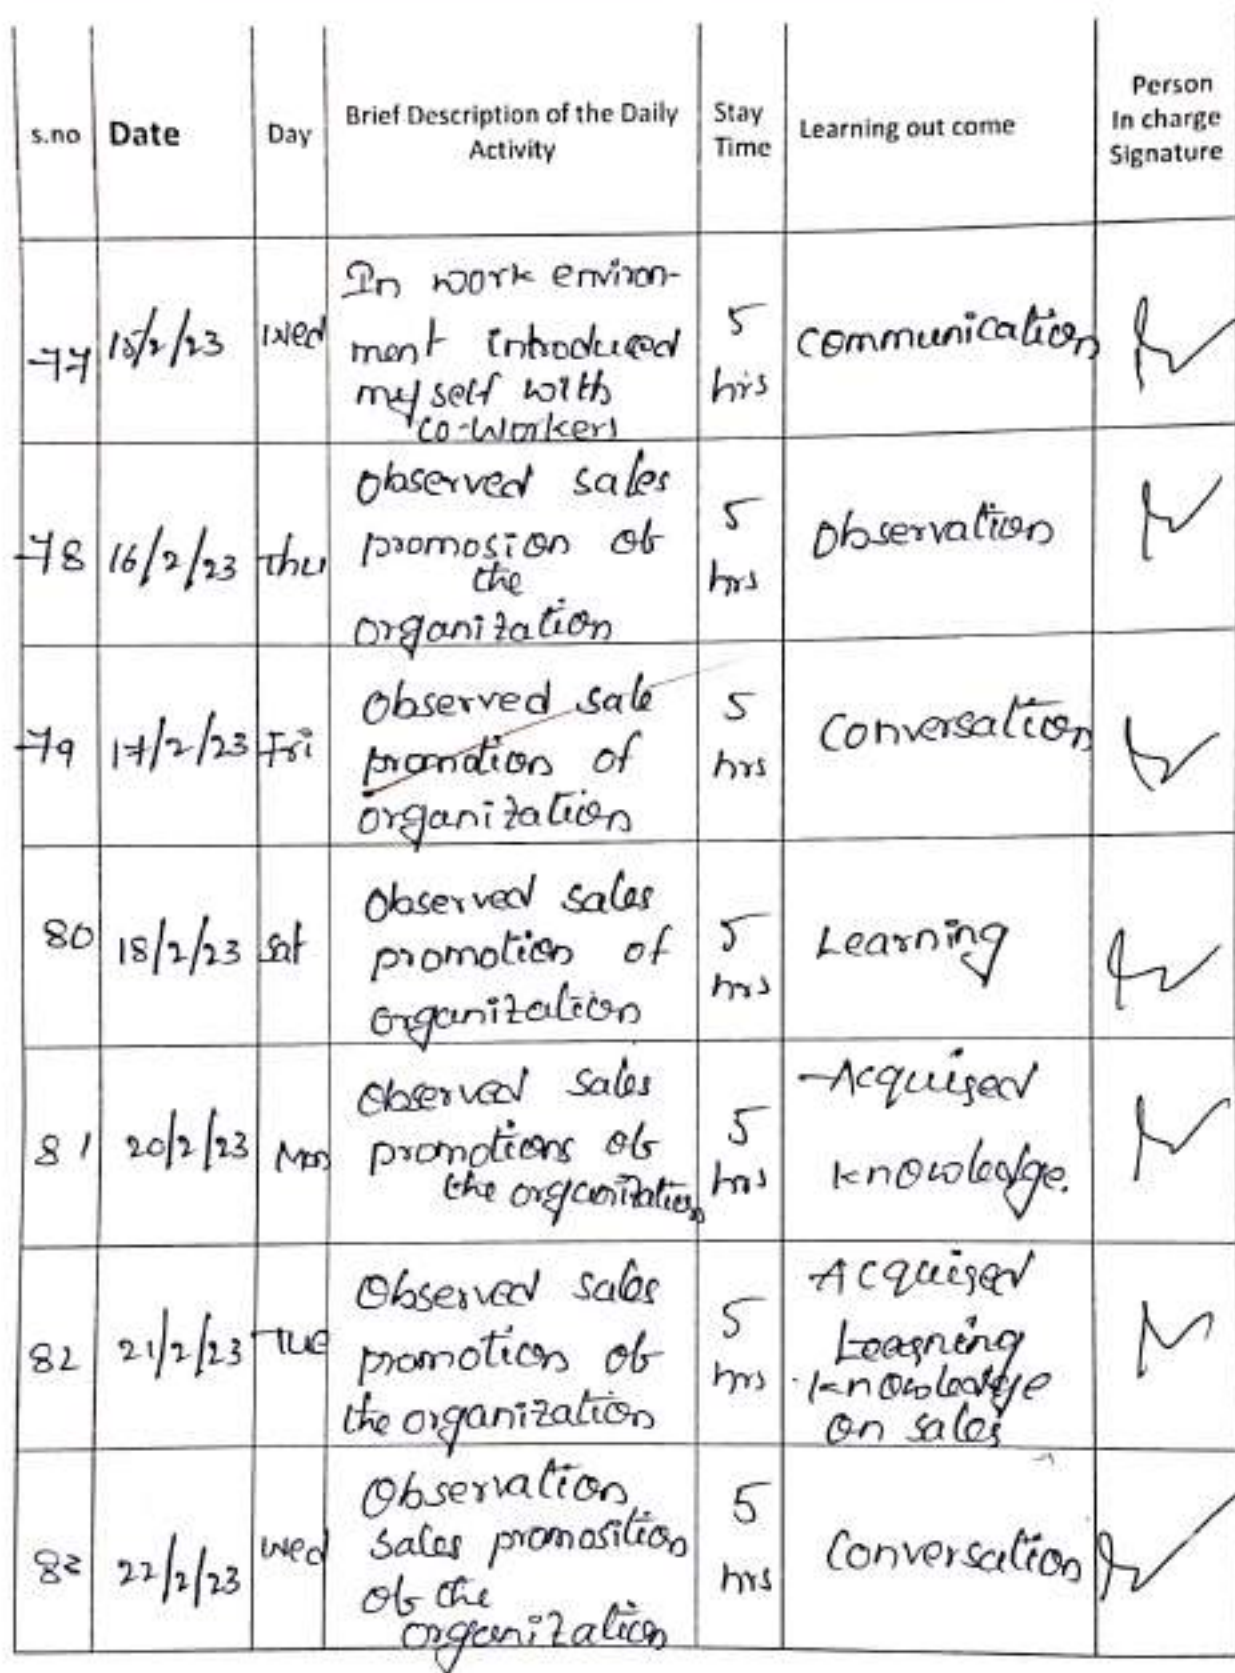 s.no Date Day Brief Description of the Daily Activity Stay Time Learning out come Person In charge Signature
77 15/2/23 Wed In work environ-
ment introduced
myself with
co-workers 5 hrs Communication
78 16/2/23 Thu Observed sales
promosion of
the
organization 5 hrs Observation
79 17/2/23 Fri Observed sale
promotion of
organization 5 hrs Conversation
80 18/2/23 Sat Observed sales
promotion of
organization 5 hrs Learning
81 20/2/23 Mon Observed sales
promotions of
the organization 5 hrs Acquired
knowledge.
82 21/2/23 Tue Observed sales
promotion of
the organization 5 hrs Acquired
Learning
knowledge
on sales
83 22/2/23 Wed Observation
sales promosition
of the
organization 5 hrs Conversation